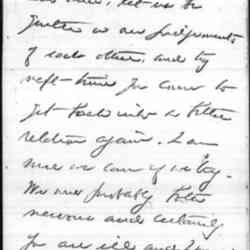 let us be
gentler in our judgements
of each other, and try
next time you come to
get back into a better
relation again. I am
sure we can if we try.
We are probably both
nervous and certainly
you are ill and